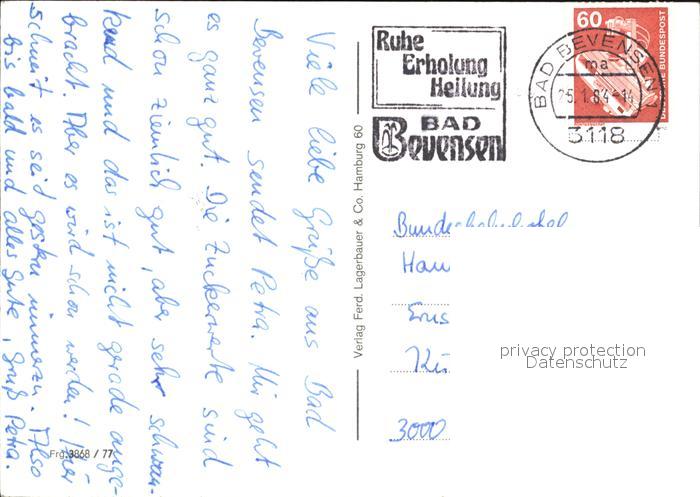 Viele liebe Grüße aus Bad
Bevensen sendet Petra. Mir geht
es ganz gut. Die Zuckerwerte sind
schon ziemlich gut, aber sehr schwan-
kend und das ist nicht gerade ange-
bracht. Aber es wird schon werden! Hier
schneit es seid gestern immerzu. Also
bis bald und alles Gute, Gruß Petra.
Frg. 3868 / 77
Verlag Ferd. Lagerbauer & Co. Hamburg 60
Ruhe
Erholung
Heilung
BAD
Bevensen
BAD BEVENSEN
ma
25.1.84-14
3118
60
DEUTSCHE BUNDESPOST
Han
3000
privacy protection
Datenschutz